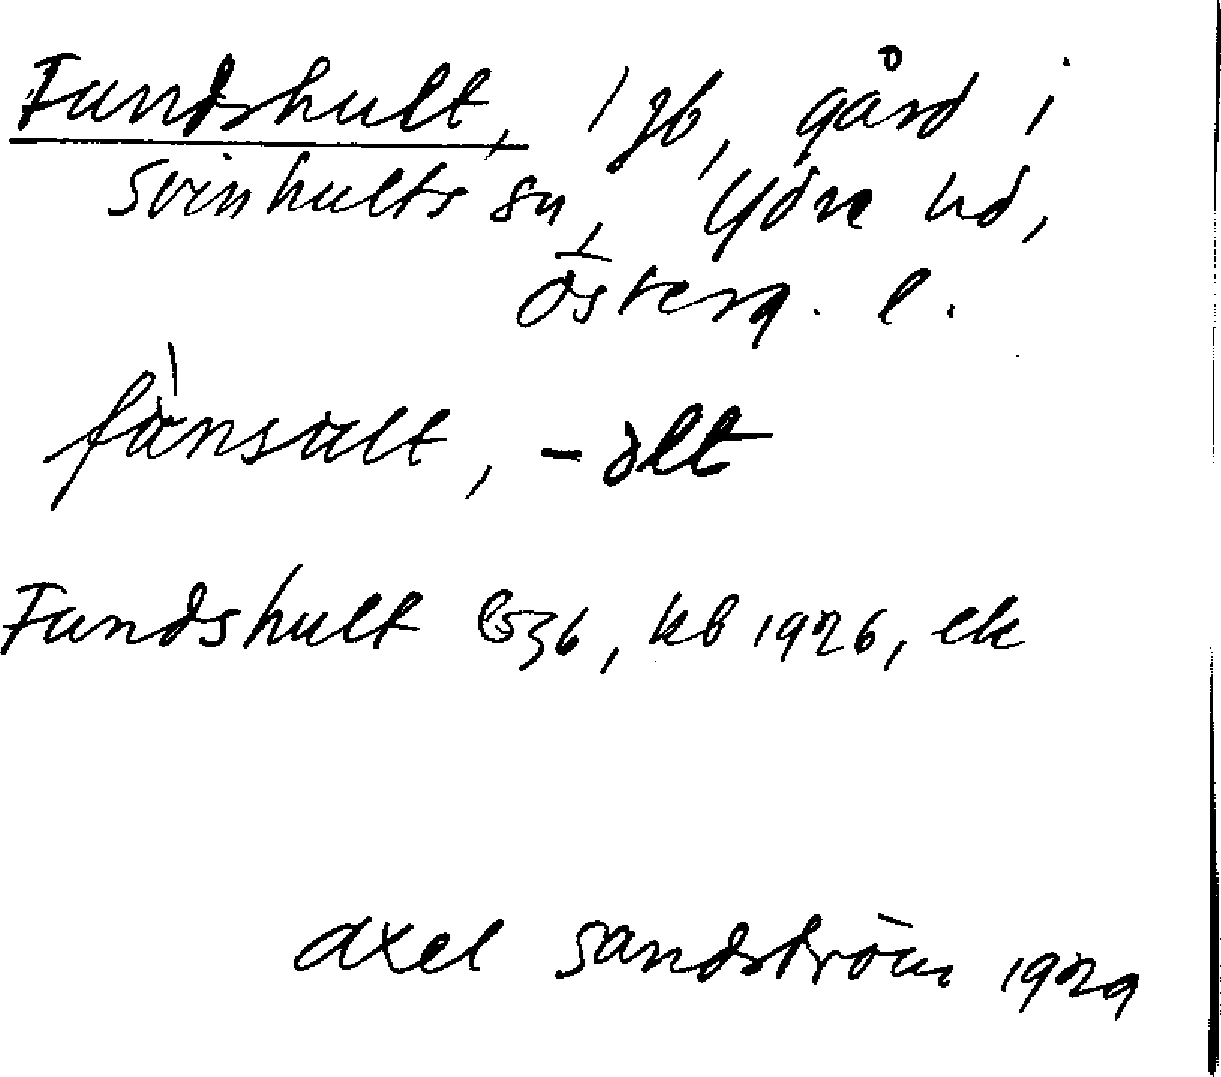 Fundshult, 1 gb, gård i
Svinhults sn, Ydre hd,
Österg. l.
fànsult, -òlt
Fundshult G536, kb 1926, ek
Axel Sandström 1929